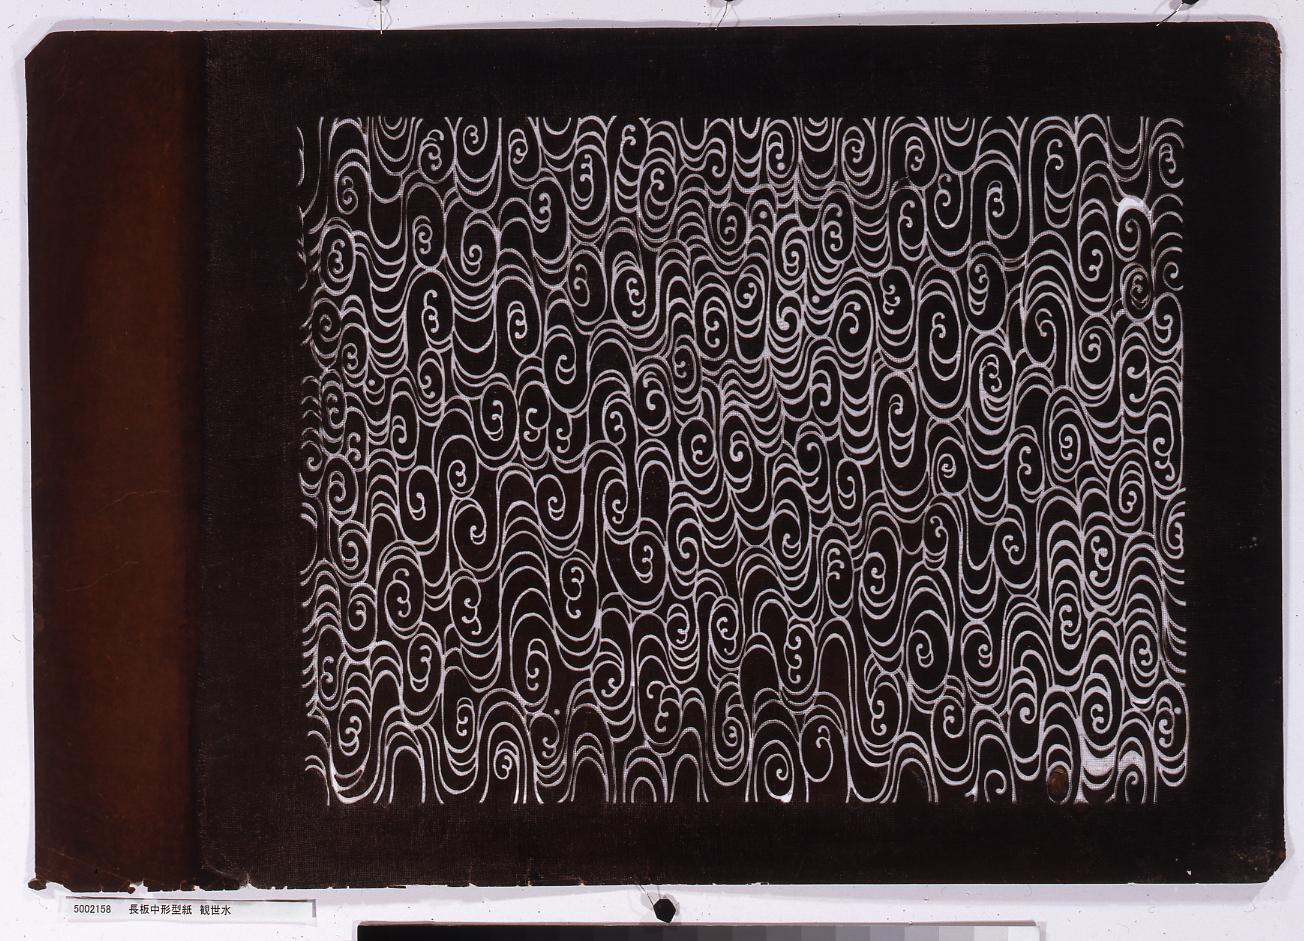 5002158 長板中形型紙 観世水